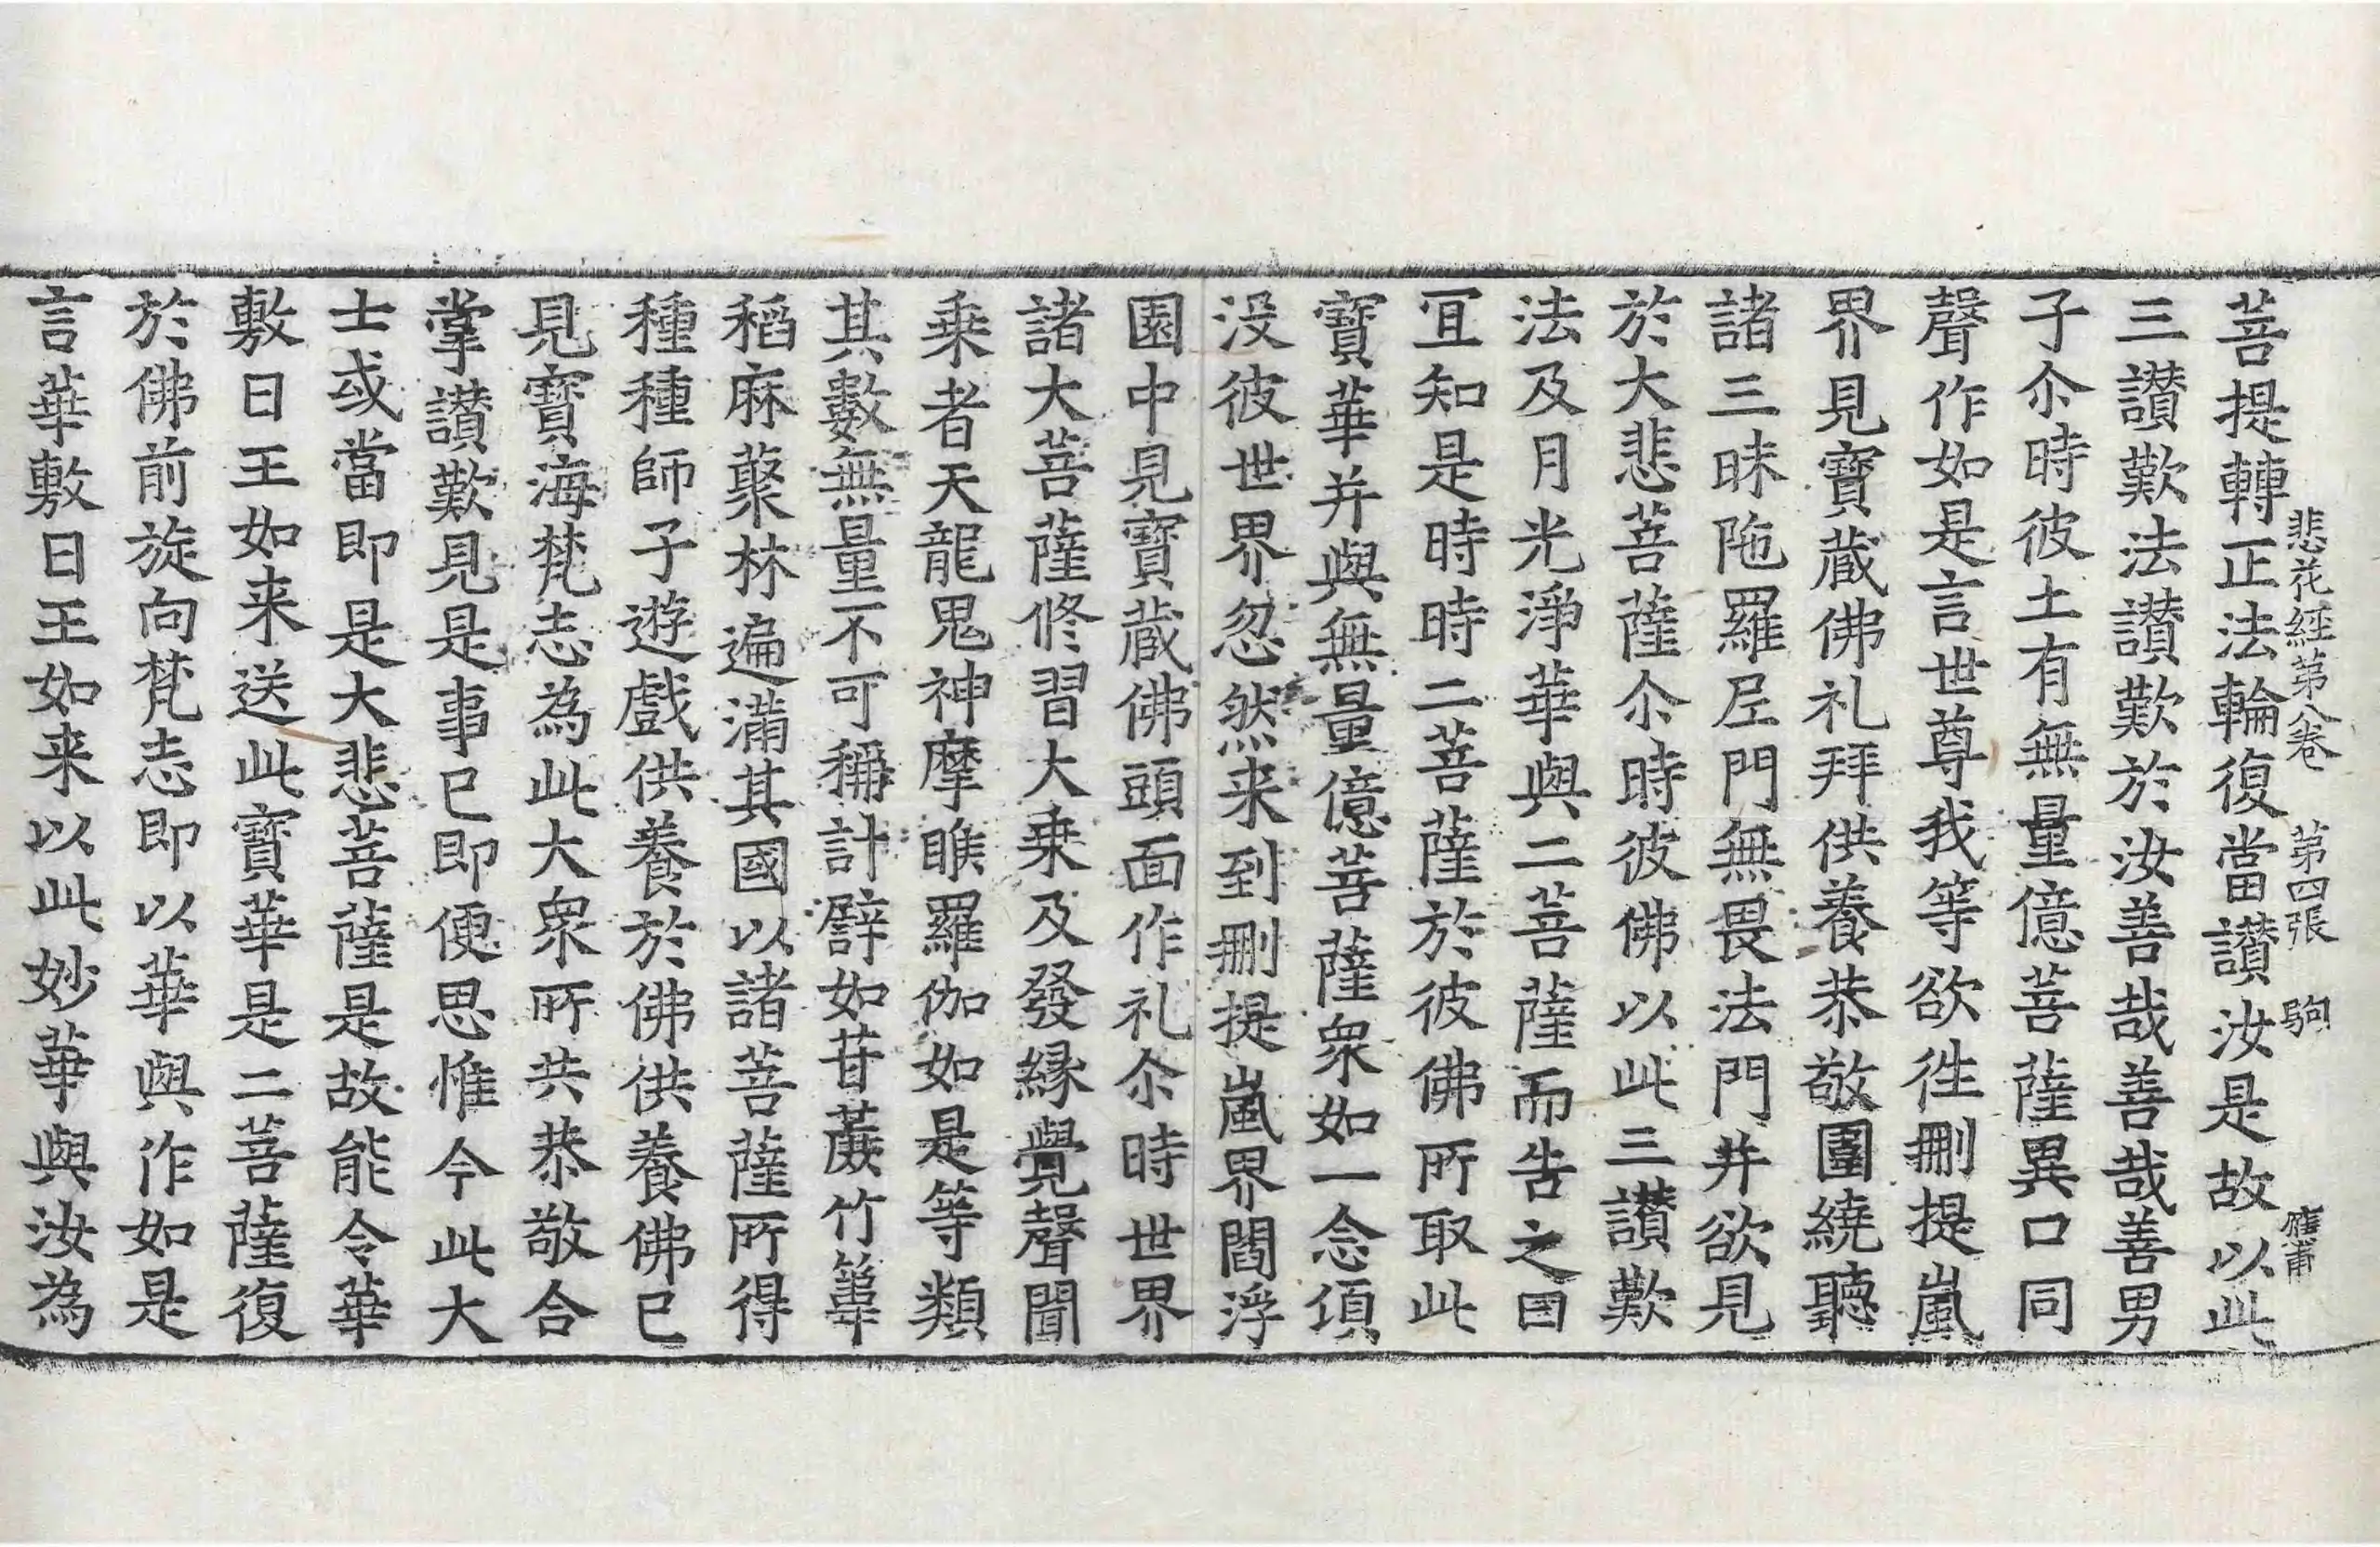 悲花経第八卷 第四張 駒 應甫
菩提轉正法輪復當讃汝是故以此
三讃歎法讃歎於汝善哉善哉善男
子尒時彼土有無量億菩薩異口同
聲作如是言世尊我等欲徃刪提嵐
界見寶蔵佛礼拜供養恭敬圍繞聽
諸三昧陁羅尼門無畏法門并欲見
於大悲菩薩尒時彼佛以此三讃歎
法及月光淨華與二菩薩而告之曰
冝知是時時二菩薩於彼佛所取此
寶華并與無量億菩薩衆如一念項
没彼世界忽然来到刪提嵐界閻浮
園中見寶蔵佛頭面作礼尒時世界
諸大菩薩修習大乗及發縁覺聲聞
乗者天龍鬼神摩睺羅伽如是等類
其數無量不可稱計譬如苷蔗竹葦
稻麻藂林遍滿其國以諸菩薩所得
種種師子遊戲供養於佛供養佛已
見寶海梵志為此大衆所共恭敬合
掌讃歎見是事已即便思惟今此大
士或當即是大悲菩薩是故能令華
敷日王如来送此寶華是二菩薩復
於佛前旋向梵志即以華與作如是
言華敷日王如来以此妙華與汝為